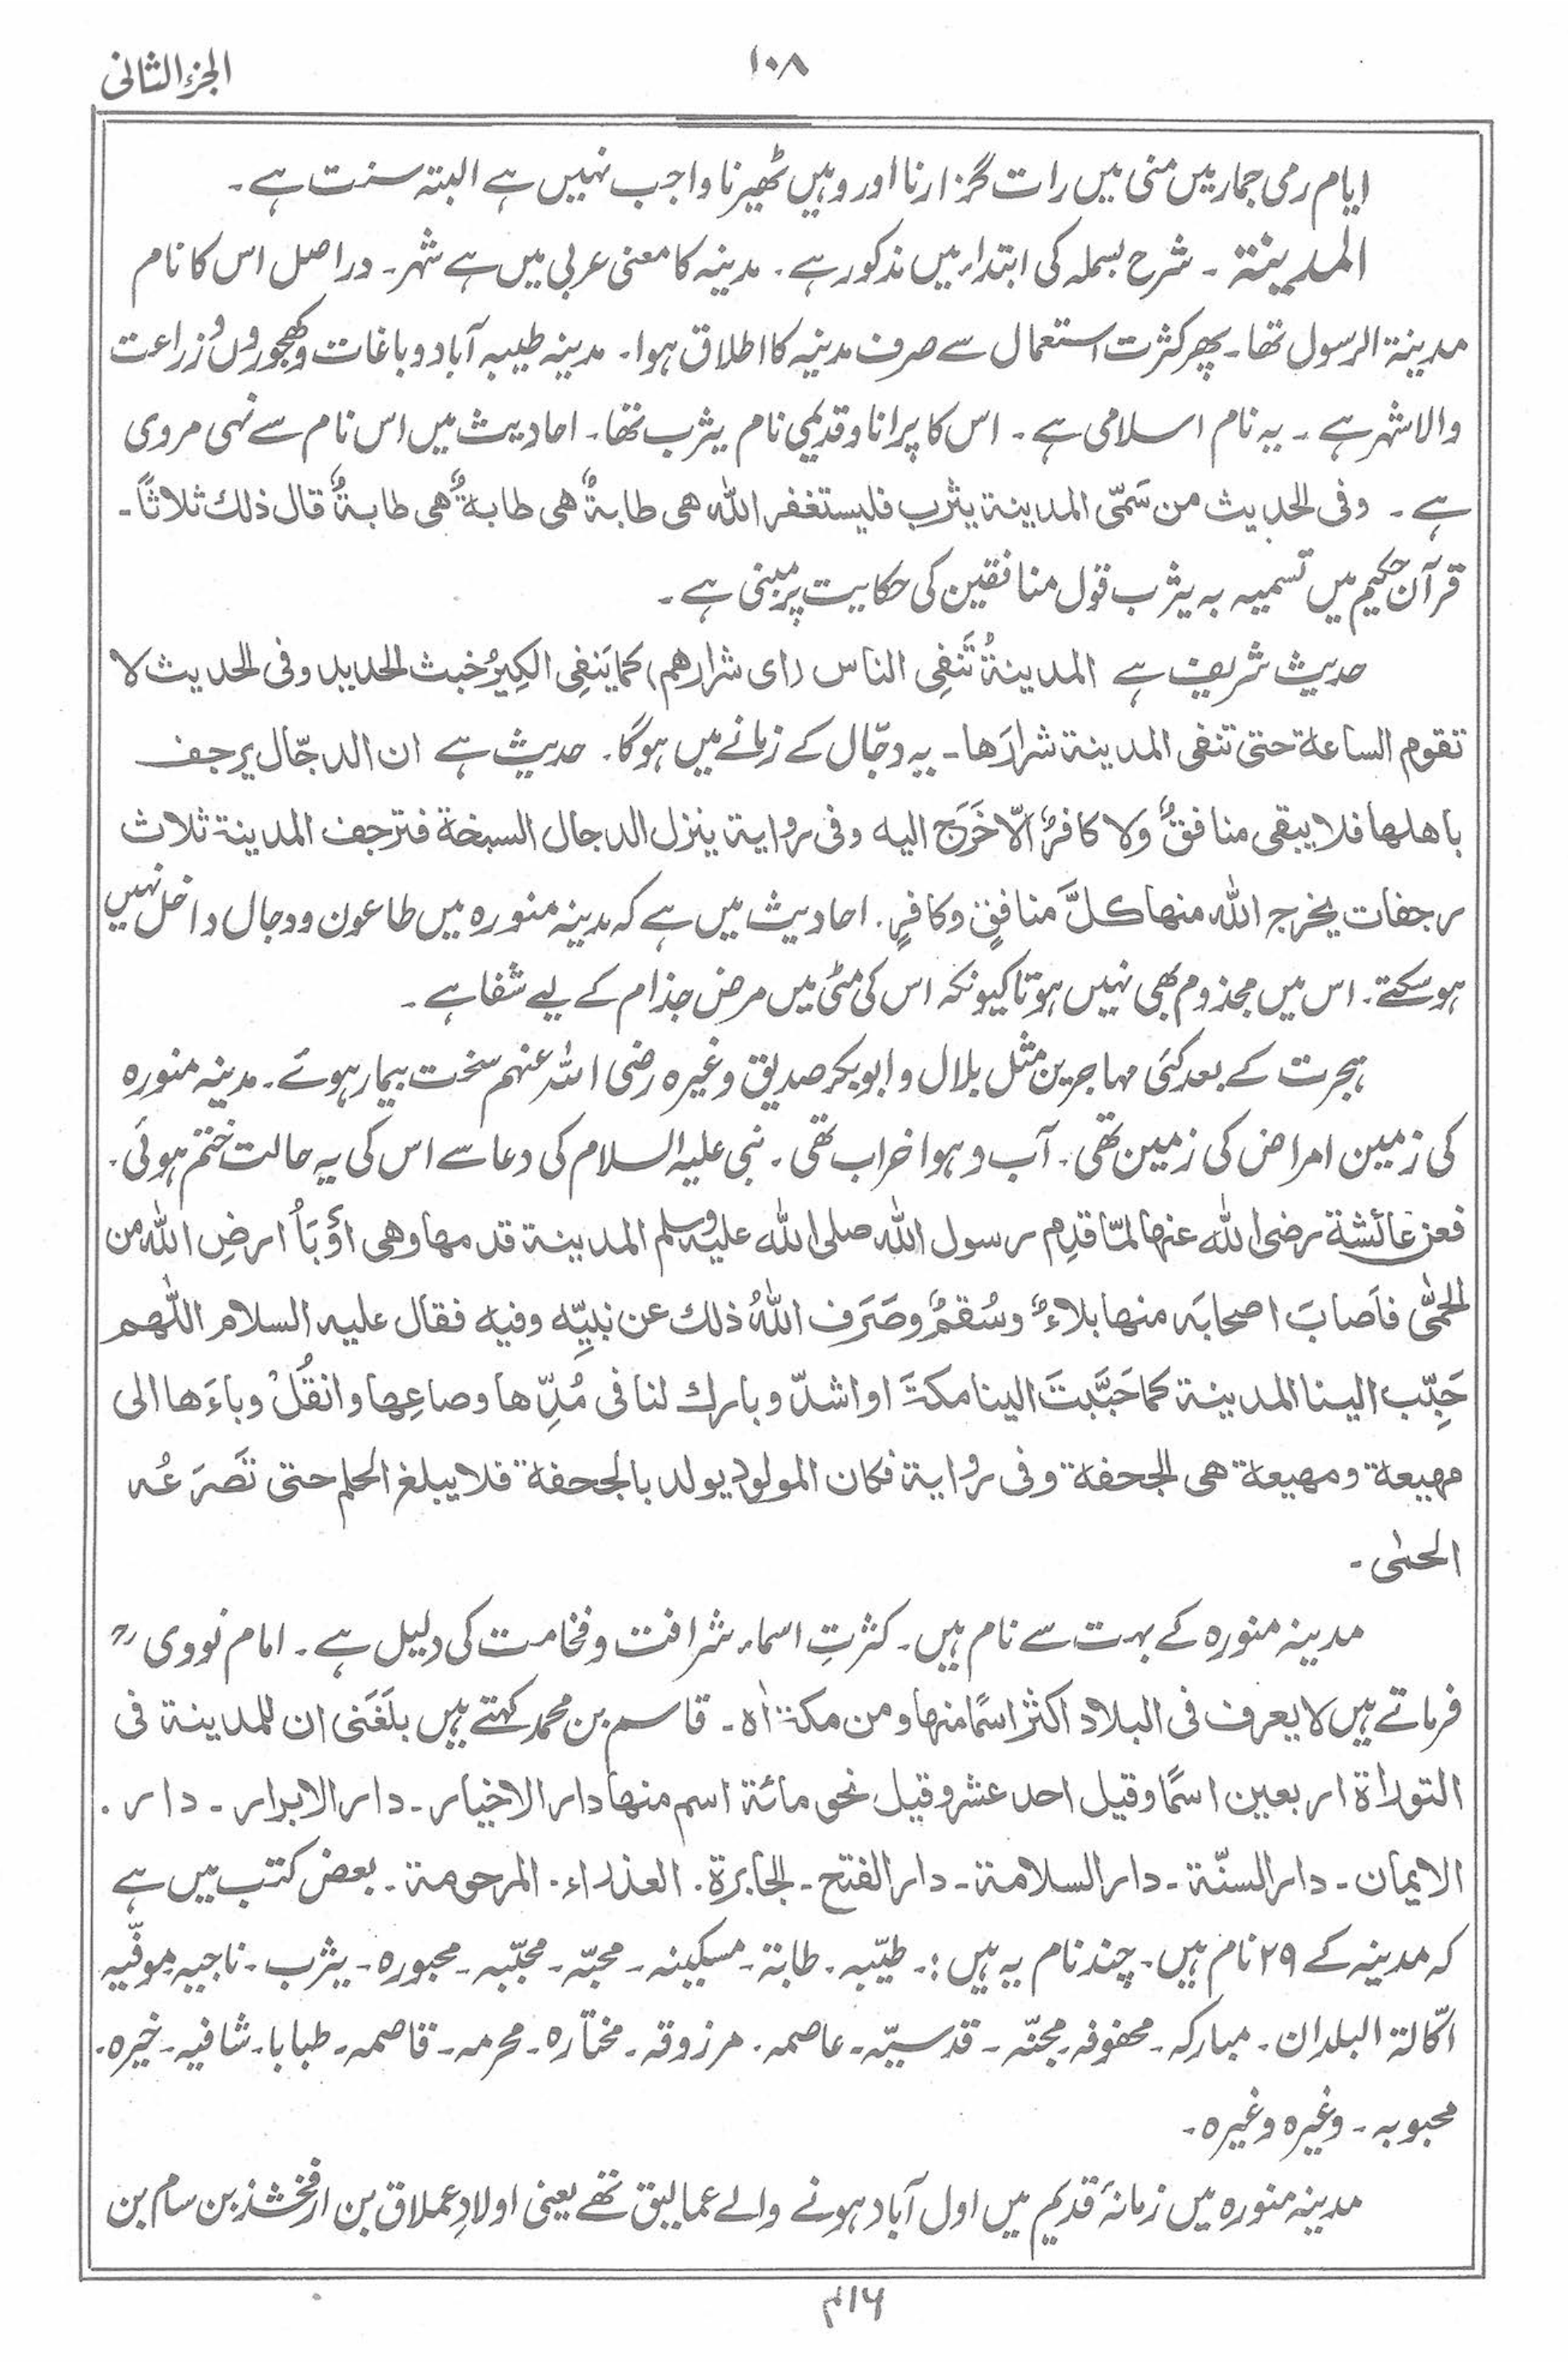 الجزء الثانی
۱۰۸
ایام رمی جمار میں منی میں رات گزارنا اور وہیں ٹھیرنا واجب نہیں ہے البتہ سنت ہے۔
المدینۃ ۔ شرح بسملہ کی ابتداء میں مذکور ہے ۔ مدینہ کا معنی عربی میں ہے شہر ۔ دراصل اس کا نام
مدینۃ الرسول تھا ۔ پھر کثرت استعمال سے صرف مدینہ کا اطلاق ہوا ۔ مدینہ طیبہ آباد و باغات و کھجوروں و زراعت
والا شہر ہے ۔ یہ نام اسلامی ہے ۔ اس کا پرانا و قدیمی نام یثرب تھا ۔ احادیث میں اس نام سے نہی مروی
ہے ۔ وفی الحدیث من سَمّی المدینۃ یثرب فلیستغفر اللہ ھی طابۃٌ ھی طابۃٌ ھی طابۃٌ قال ذلك ثلاثاً ۔
قرآن حکیم میں تسمیہ بہ یثرب قول منافقین کی حکایت پر مبنی ہے ۔
حدیث شریف ہے المدینۃُ تَنفِی الناس (ای شرارھم) کما یَنفِی الکِیرُ خبث الحدید وفی الحدیث لا
تقوم الساعۃ حتی تنفی المدینۃ شرارَھا ۔ یہ دجّال کے زمانے میں ہوگا ۔ حدیث ہے ان الدجّال یرجف
باھلھا فلا یبقی منافقٌ ولا کافرٌ الّا خَرَج الیہ وفی روایۃ ینزل الدجال السبخۃ فترجف المدینۃ ثلاث
رجفات یخرج اللہ منھا کلَّ منافقٍ وکافرٍ ۔ احادیث میں ہے کہ مدینہ منورہ میں طاعون و دجال داخل نہیں
ہو سکتے ۔ اس میں مجذوم بھی نہیں ہوتا کیونکہ اس کی مٹی میں مرض جذام کے لیے شفا ہے ۔
ہجرت کے بعد کئی مہاجرین مثل بلال و ابوبکر صدیق وغیرہ رضی اللہ عنہم سخت بیمار ہوئے ۔ مدینہ منورہ
کی زمین امراض کی زمین تھی ۔ آب و ہوا خراب تھی ۔ نبی علیہ السلام کی دعا سے اس کی یہ حالت ختم ہوئی ۔
فعن عائشۃ رضی اللہ عنھا لمّا قدِم رسول اللہ صلی اللہ علیہ وسلم المدینۃ قدمھا وھی اَوْبَأُ ارضِ اللہ من
الحُمّٰی فاَصابَ اصحابَہ منھا بلاءٌ وسُقمٌ وصَرَف اللہُ ذلك عن نبیِّہ وفیہ فقال علیہ السلام اللّٰھم
حَبِّب الینا المدینۃ کما حَبَّبتَ الینا مکۃَ او اشدّ وبارك لنا فی مُدِّھا وصاعِھا وانقُلْ وباءَھا الی
مھیعۃ ومھیعۃ ھی الجحفۃ وفی روایۃ فکان المولود یولد بالجحفۃ فلا یبلغ الحلم حتی تَصَرَعُہ
الحمٰی ۔
مدینہ منورہ کے بہت سے نام ہیں ۔ کثرتِ اسماء شرافت و فخامت کی دلیل ہے ۔ امام نووی ؒ
فرماتے ہیں لا یعرف فی البلاد اکثر اسمًا منھا ومن مکۃ اھ ۔ قاسم بن محمد کہتے ہیں بلَغَنی ان للمدینۃ فی
التوراۃ اربعین اسمًا وقیل احد عشر وقیل نحو مائۃ اسم منھا دار الاخیار ۔ دار الابرار ۔ دار ۔
الایمان ۔ دار السنّۃ ۔ دار السلامۃ ۔ دار الفتح ۔ الجابرۃ ۔ العذراء ۔ المرحومۃ ۔ بعض کتب میں ہے
کہ مدینہ کے ۲۹ نام ہیں ۔ چند نام یہ ہیں :۔ طیّبہ ۔ طابۃ ۔ مسکینہ ۔ محبّہ ۔ محبّبہ ۔ محبورہ ۔ یثرب ۔ ناجیہ ۔ موفّیہ
اکّالۃ البلدان ۔ مبارکہ ۔ محفوفہ ۔ مجنّہ ۔ قدسیّہ ۔ عاصمہ ۔ مرزوقہ ۔ مختارہ ۔ محرمہ ۔ قاصمہ ۔ طبابا ۔ شافیہ ۔ خیرہ ۔
محبوبہ ۔ وغیرہ وغیرہ ۔
مدینہ منورہ میں زمانۂ قدیم میں اول آباد ہونے والے عمالیق تھے یعنی اولادِ عملاق بن ارفخشذ بن سام بن